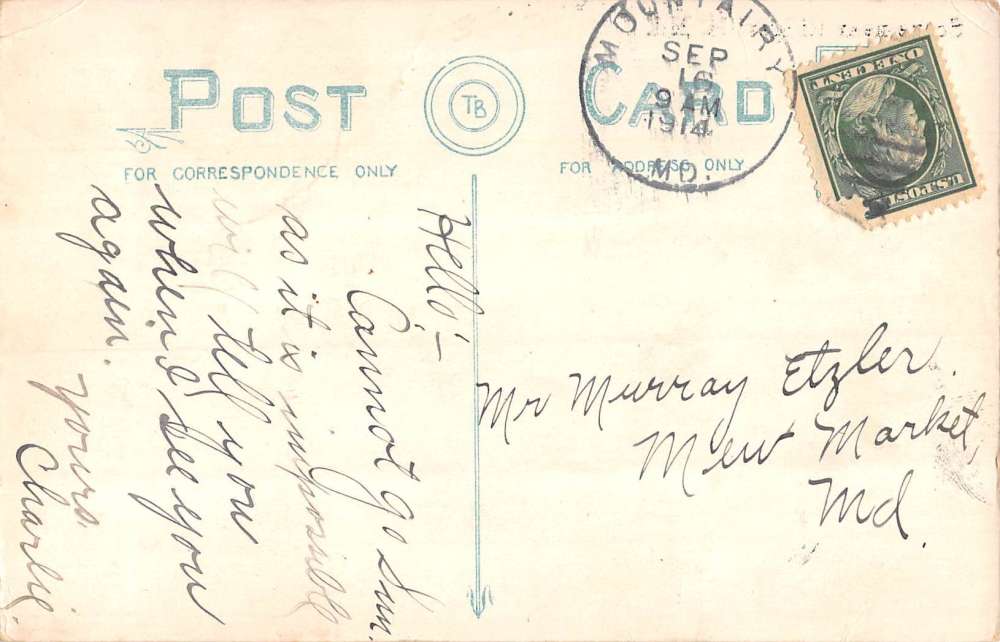 POST CARD
TB
FOR CORRESPONDENCE ONLY
FOR ADDRESS ONLY
MOUNT AIRY
SEP
10
9 AM
1914
MD.
U.S. POST
ONE CENT
Hello –
Cannot go Sun.
as it is impossible
will tell you
when I see you
again.
Yours
Charlie.
Mr Murray Etzler.
New Market,
Md.